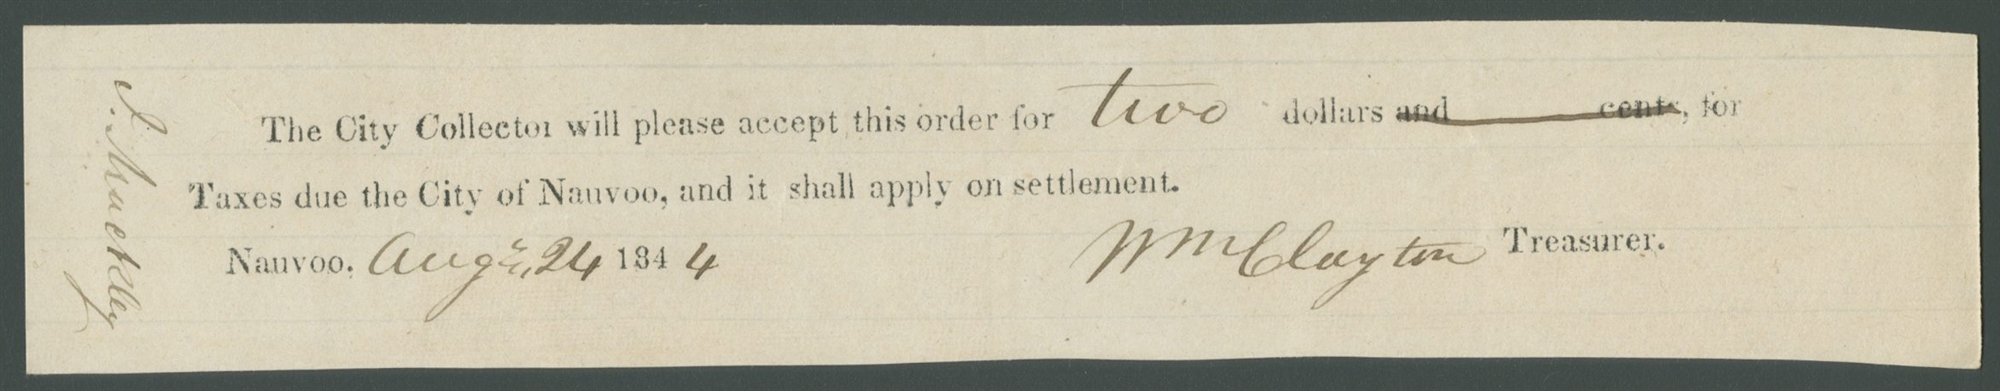 The City Collector will please accept this order for two dollars and cents, for
Taxes due the City of Nauvoo, and it shall apply on settlement.
Nauvoo, Augt. 24 1844 Wm Clayton Treasurer.
J. Mackley